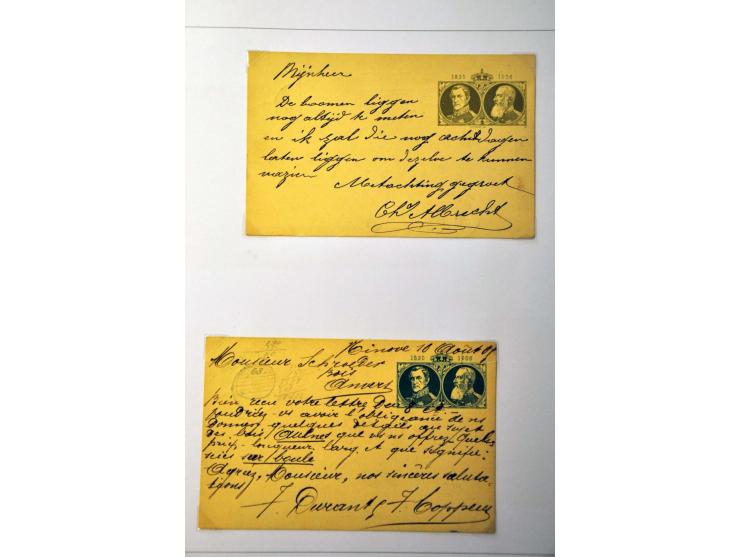 Mijnheer
De boomen liggen
nog altijd te meten
en ik zal die nog acht dagen
laten liggen om dezelve te kunnen
nazien
Met achting gegroet
Chs Albrecht
Ninove 10 Août
Monsieur Schroeder
bois
Anvers
Bien reçu votre lettre
avoir l'obligeance de
donner quelques détails au sujet
des bois (aulnes que vs ns offrez quelles
prix, longueur, larg. et que signifie
sciés sur boule
Agréez, Monsieur, nos sincères saluta-
tions)
F. Durant & F. Coppens